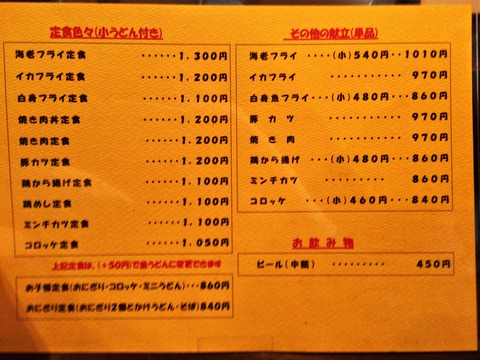 定食色々(小うどん付き)
海老フライ定食 ・・・・・・1,300円
イカフライ定食 ・・・・・・1,200円
白身フライ定食 ・・・・・・1,100円
焼き肉丼定食 ・・・・・・1,200円
焼き肉定食 ・・・・・・1,200円
豚カツ定食 ・・・・・・1,200円
鶏から揚げ定食 ・・・・・・1,100円
鶏めし定食 ・・・・・・1,100円
ミンチカツ定食 ・・・・・・1,100円
コロッケ定食 ・・・・・・1,050円
上記定食は、(+50円)で並うどんに変更できます
お子様定食(おにぎり・コロッケ・ミニうどん)・・・860円
おにぎり定食(おにぎり2個とかけうどん・そば)840円
その他の献立(単品)
海老フライ ・・・・(小)540円・・1010円
イカフライ ・・・・・・・・・・ 970円
白身魚フライ・・・・(小)480円・・・860円
豚カツ ・・・・・・・・・・ 970円
焼き肉 ・・・・・・・・・・ 970円
鶏から揚げ ・・・・(小)480円・・・860円
ミンチカツ ・・・・・・・・・ 860円
コロッケ ・・・(小)460円・・・840円
お飲み物
ビール(中瓶) ・・・・・・・・・ 450円